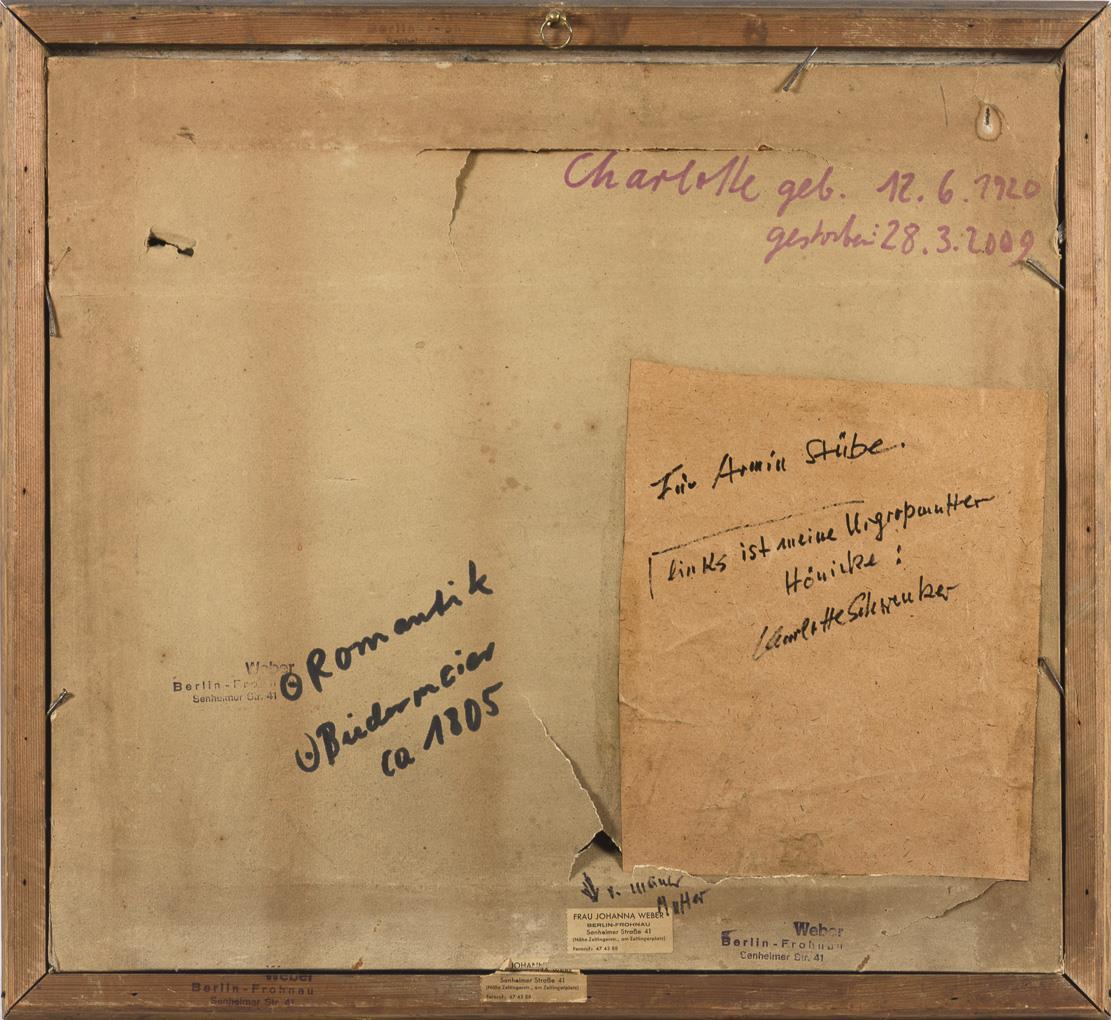 Charlotte geb. 12.6.1920
gestorben 28.3.2009
Für Armin Stübe.
links ist meine Urgroßmutter
Hönicke :
Charlotte Schwenker
Romantik
Biedermeier
ca 1805
Weber
Berlin-Frohnau
Senheimer Str. 41
v. meiner
Mutter
FRAU JOHANNA WEBER
BERLIN-FROHNAU
Senheimer Straße 41
(Nähe Zeltingerstr., am Zeltingerplatz)
Fernruf: 47 43 88
Weber
Berlin-Frohnau
Senheimer Str. 41
JOHANNA
Senheimer Straße 41
(Nähe Zeltingerstr., am Zeltingerplatz)
Fernruf: 47 43 88
Weber
Berlin-Frohnau
Senheimer Str. 41